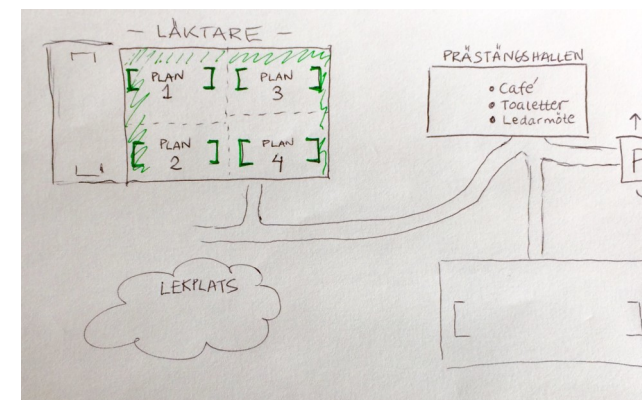 - LÄKTARE -
PLAN
1
PLAN
3
PLAN
2
PLAN
4
PRÄSTÄNGSHALLEN
• Café
• Toaletter
• Ledarmöte
P
LEKPLATS